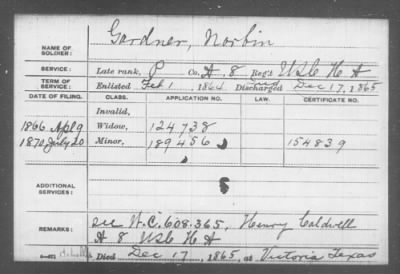 NAME OF SOLDIER: Gardner, Norbin
SERVICE: Late rank, P Co. A, 8 Reg't U S C H A
TERM OF SERVICE: Enlisted Feb 1, 1864 Died Discharged Dec 17, 1865
DATE OF FILING. CLASS. APPLICATION NO. LAW. CERTIFICATE NO.
Invalid,
1866 Apl 9 Widow, 124738
1870 July 20 Minor, 189456 154839
ADDITIONAL SERVICES:
REMARKS: see W.C. 608.365, Henry Caldwell
A 8 U S C H A
Died Dec 17, 1865, at Victoria Texas